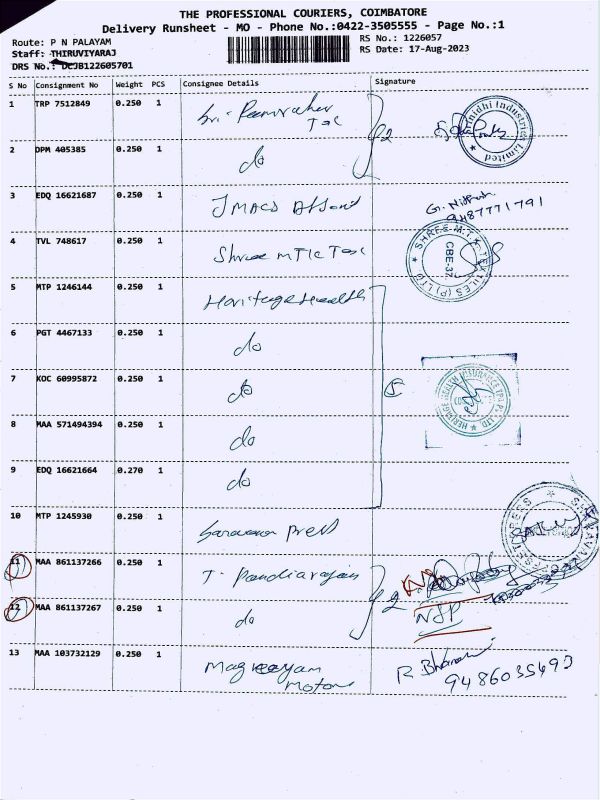 THE PROFESSIONAL COURIERS, COIMBATORE
Delivery Runsheet - MO - Phone No.:0422-3505555 - Page No.:1
Route: P N PALAYAM
RS No.: 1226057
Staff: THIRUVIYARAJ
RS Date: 17-Aug-2023
DRS No.: DCJB122605701
S No Consignment No Weight PCS Consignee Details Signature
1 TRP 7512849 0.250 1 Sri
Tex 2
2 DPM 405385 0.250 1 do
3 EDQ 16621687 0.250 1 JMACS
G.
9487771791
4 TVL 748617 0.250 1 Shree MTK Tex
SHREE M.T.K. TEXTILES (P) LTD
CBE-37.
5 MTP 1246144 0.250 1 Heritage Health
6 PGT 4467133 0.250 1 do
7 KOC 60995872 0.250 1 do 5
8 MAA 571494394 0.250 1 do
9 EDQ 16621664 0.270 1 do
10 MTP 1245930 0.250 1 Saravana Press
11 MAA 861137266 0.250 1 T. Pandiarajan
12 MAA 861137267 0.250 1 do 2
NSP
13 MAA 103732129 0.250 1
Motors
R
9486035493